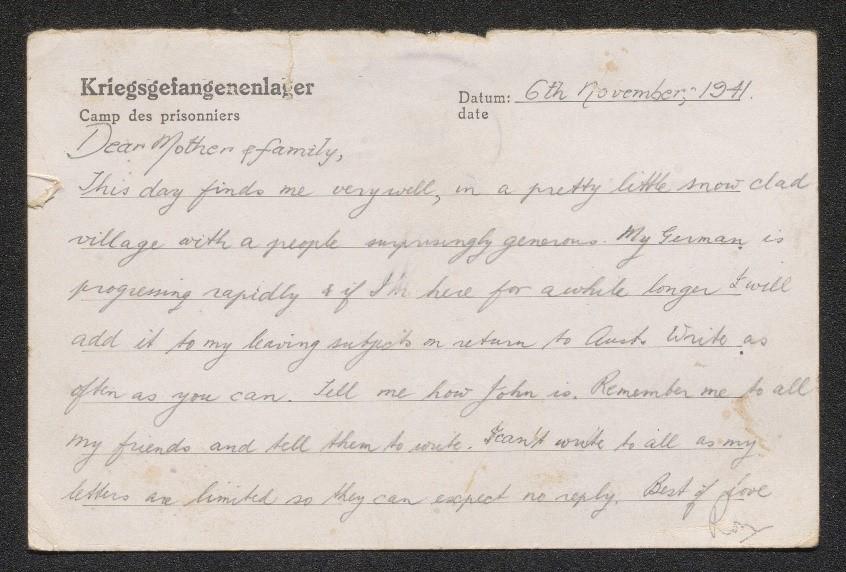 Kriegsgefangenenlager
Camp des prisonniers
Datum: 6th November, 1941.
date
Dear Mother & family,
This day finds me very well, in a pretty little snow clad
village with a people surprisingly generous. My German is
progressing rapidly & if I'm here for a while longer I will
add it to my leaving subjects on return to Aust. Write as
often as you can. Tell me how John is. Remember me to all
my friends and tell them to write. I can't write to all as my
letters are limited so they can expect no reply. Best of love
Roy